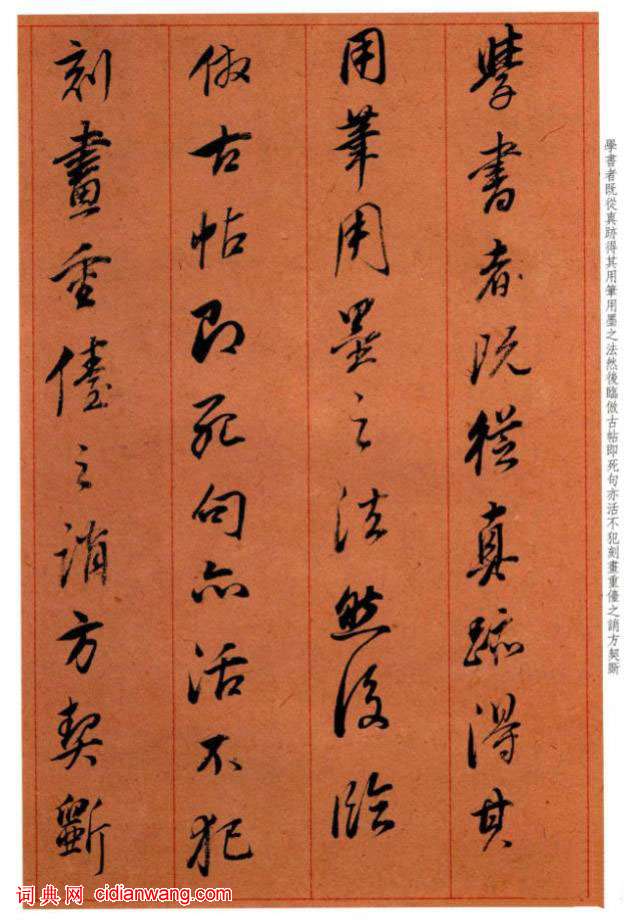 學書者既從真跡得其
用筆用墨之法然後臨
倣古帖即死句亦活不犯
刻畫重儓之誚方契斲
學書者既從真跡得其用筆用墨之法然後臨倣古帖即死句亦活不犯刻畫重儓之誚方契斲
词典网 cidianwang.com